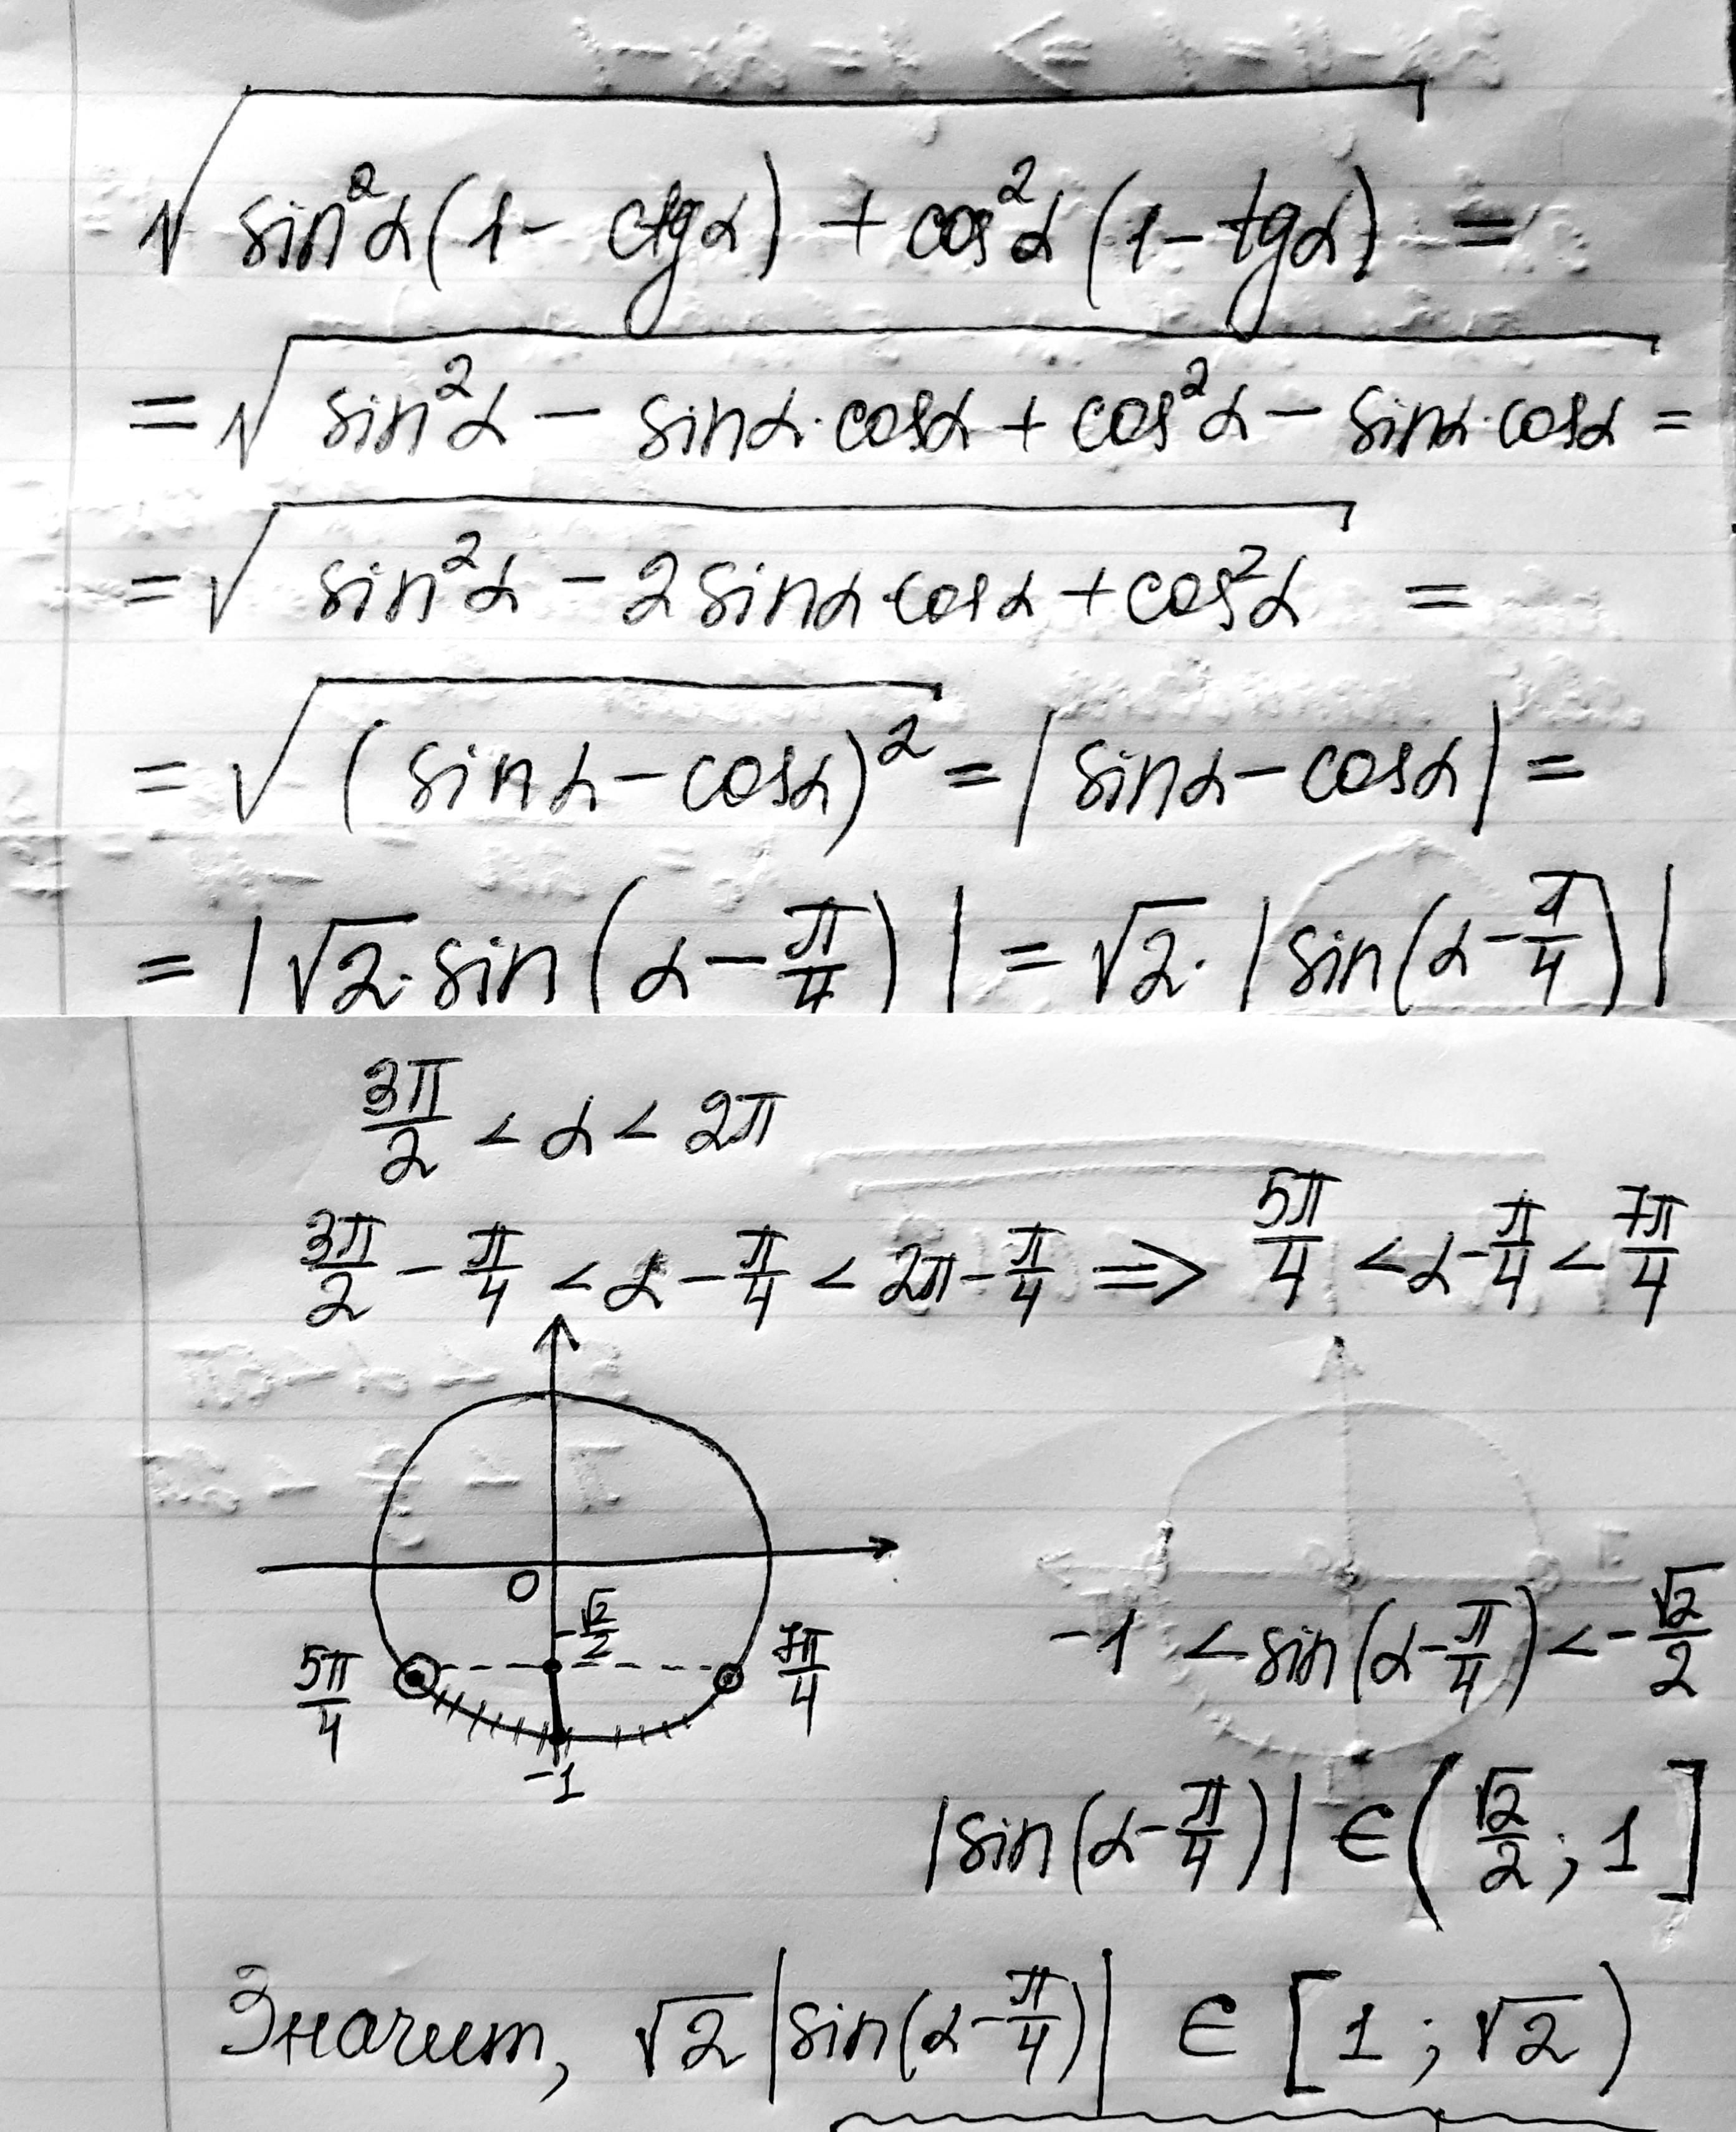 √(sin²α(1 - ctgα) + cos²α(1 - tgα)) =
= √(sin²α - sinα·cosα + cos²α - sinα·cosα) =
= √(sin²α - 2sinα·cosα + cos²α) =
= √((sinα - cosα)²) = |sinα - cosα| =
= |√2·sin(α - π/4)| = √2·|sin(α - π/4)|
3π/2 < α < 2π
3π/2 - π/4 < α - π/4 < 2π - π/4 => 5π/4 < α - π/4 < 7π/4
0
-√2/2
5π/4
7π/4
-1
-1 < sin(α - π/4) < -√2/2
|sin(α - π/4)| ∈ (√2/2; 1]
Значит, √2|sin(α - π/4)| ∈ [1; √2)